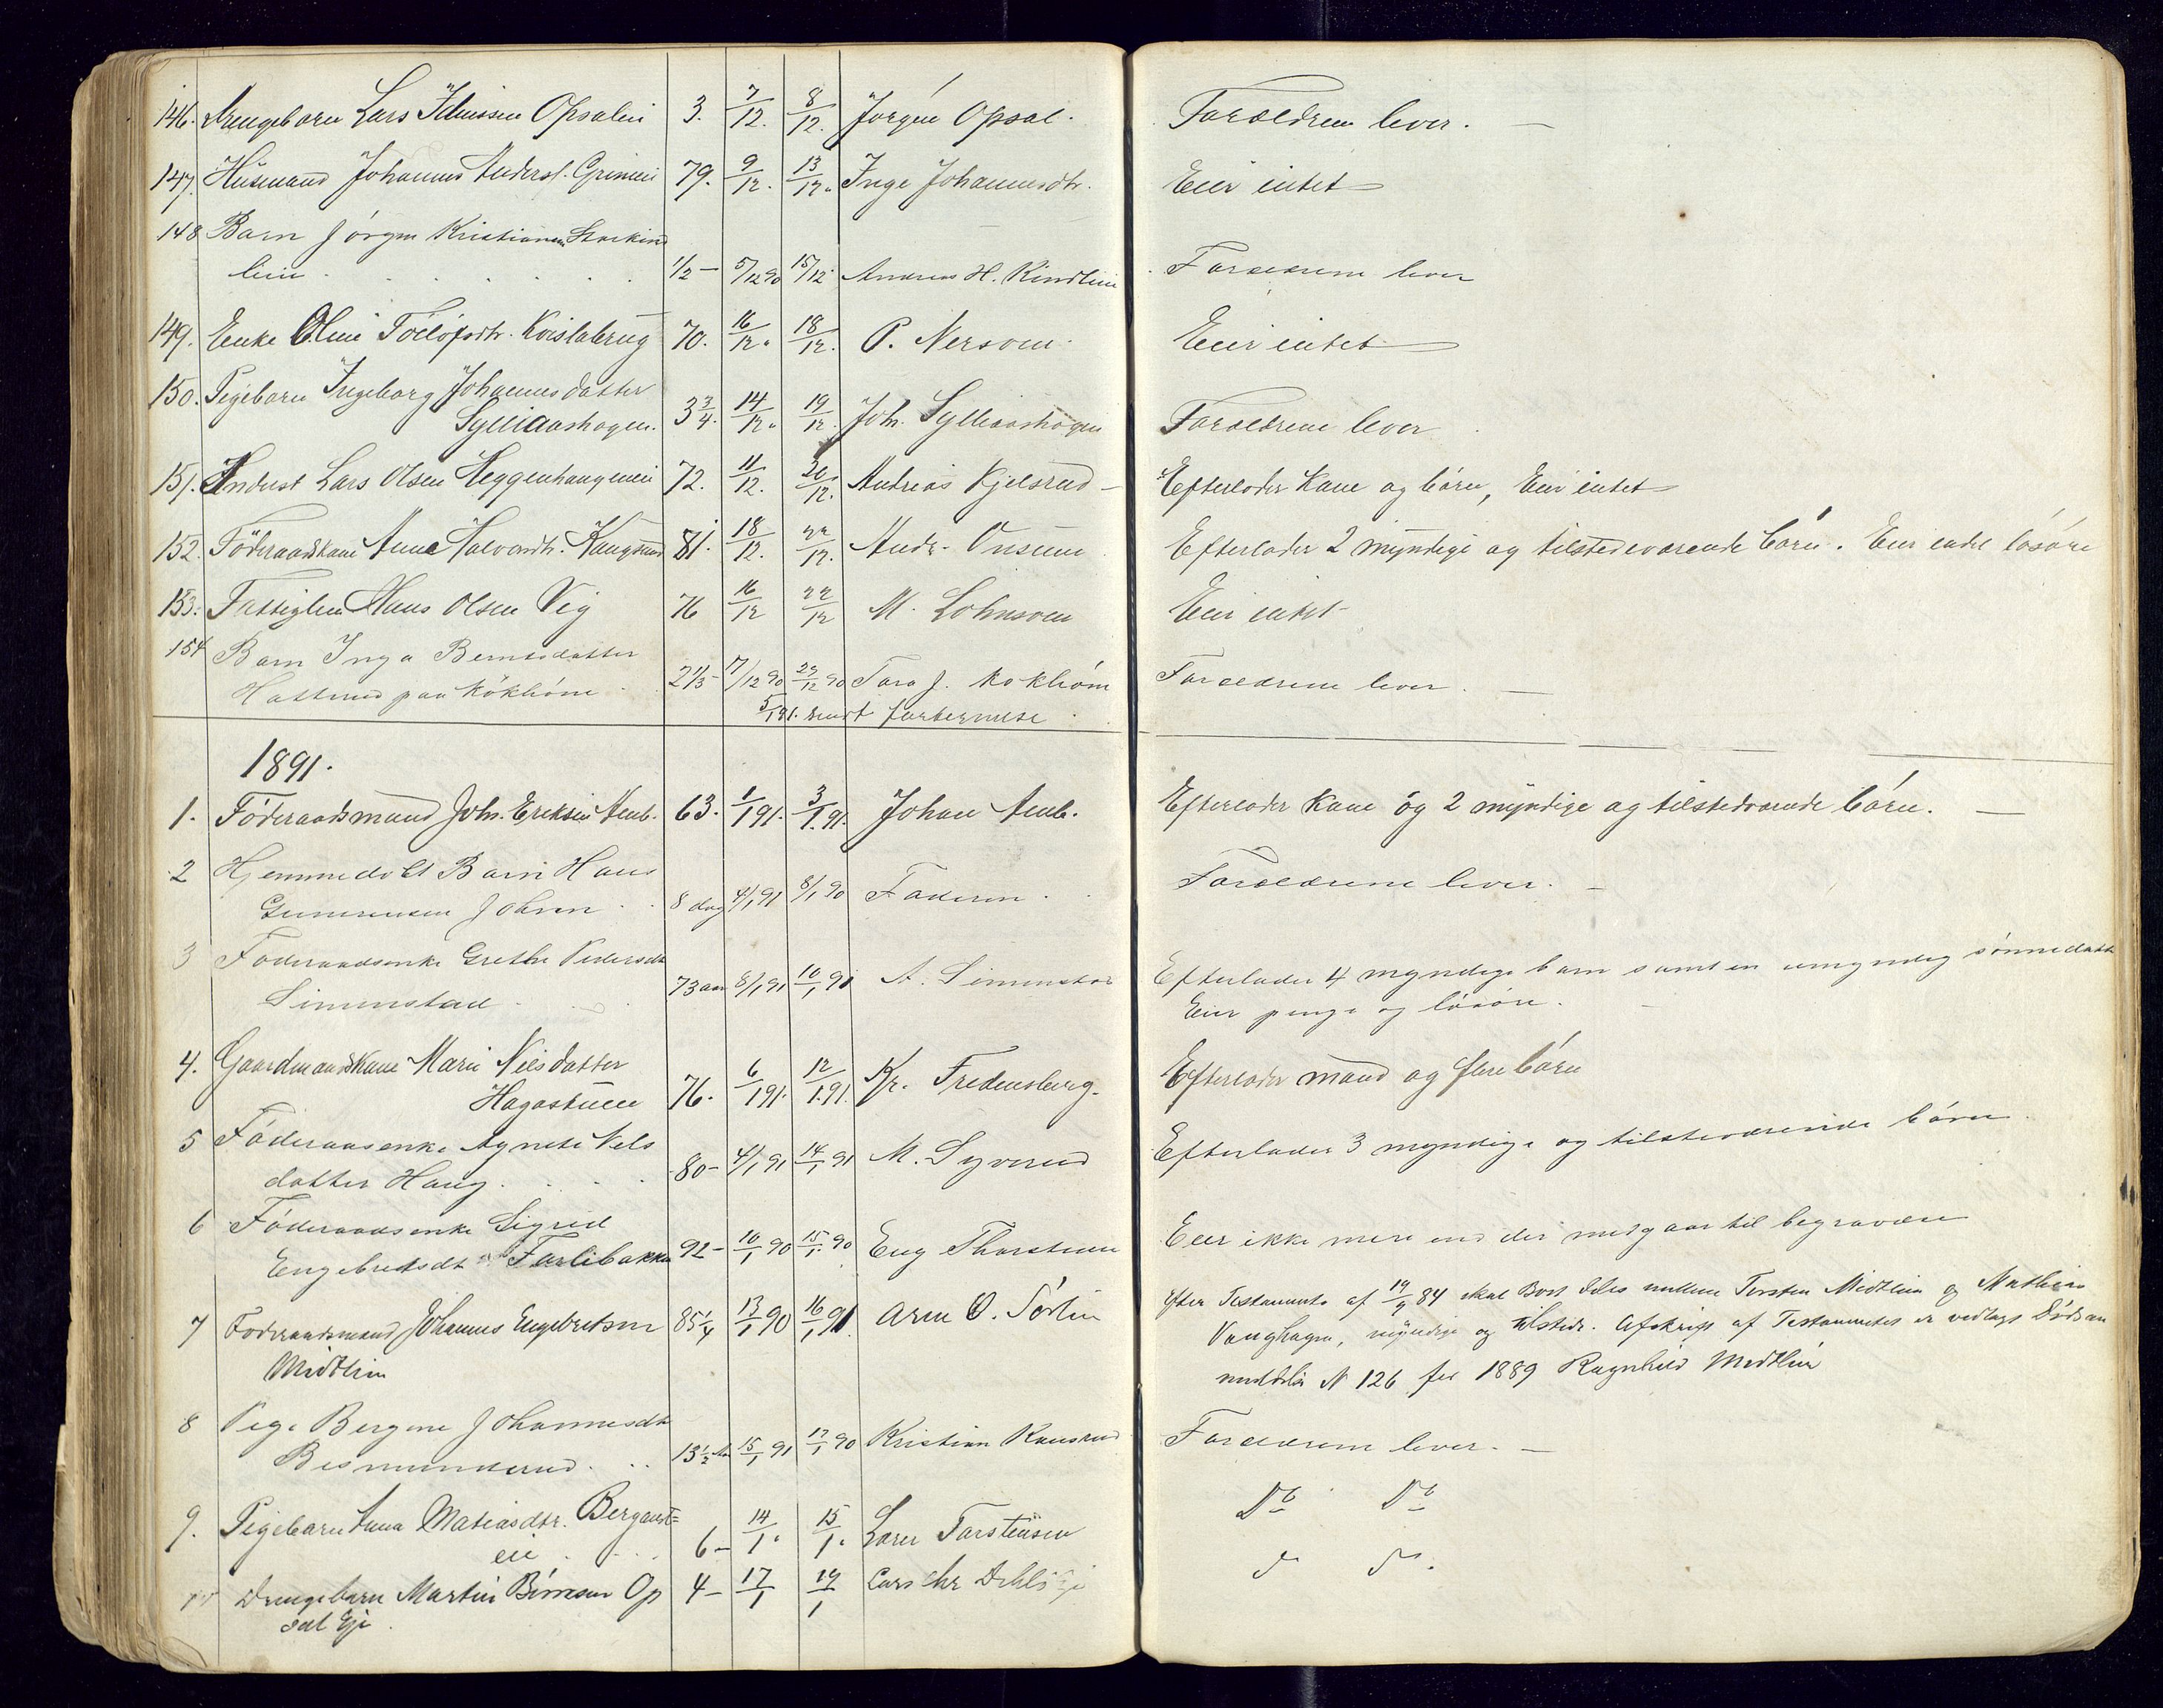 146. Drengebarn Lars Opsalei 3. 7/12. 8/12. Jørgen Opsal. Forældrene lever. —
147. Husmand Johannes Anders. Grimei 79. 9/12. 13/12. Inge Johannesdtr. Eier intet —
148 Barn Jörgen Kristiansen
lien 1/2 — 5/12 90 15/12. Andreas H. Kindlien Forældrene lever
149. Enke Oline Kvislabrug 70. 16/12. 18/12. P. Nersveen. Eier intet —
150. Pigebarn Ingeborg Johannesdatter
Sylliaashagen. 3 3/4. 14/12. 19/12. Joh. Sylliaashagen Forældrene lever
151. Inderst Lars Olsen Heggenhaugeneie 72. 11/12. 20/12. Andreas Kjelsrud — Efterlader Kone og børn, Eier intet —
152. Föderaadskone Anne Halvorsdtr. Haugsrud 81. 18/12. 22/12. Andr. Onsum Efterlader 2 myndige og tilstedeværende børn. Eier endel løsøre
153. Fattiglem Hans Olsen Vig 76 16/12 22/12 M. Lohnsveen Eier intet
154 Barn Inga Berntsdatter
Hattrud paa Kökhóm 2 1/3 — 7/12 90 29/12 90 Tara J. Kokhóm Forældrene lever. —
5/1 91. sendt fortegnelse
1891.
1. Föderaadsmand Joh. Eriksen Amb. 63. 1/1 91. 3/1. 91. Johan Amb. Efterlader Kone og 2 myndige og tilstedværende børn. —
2 Hjemmedöbt Barn Hans
Johnsen 8 dag 4/1 91 8/1 90 Faderen. Forældrene lever. —
3 Föderaadsenke Grethe Pedersdt
Simenstad 73 aar 8/1 91 10/1 91 A. Simenstad Efterlader 4 myndige barn samt en umyndig sönnedatt
Eier penge og lösöre.
4. Gaardmandskone Marie Nilsdatter
Hagastuen 76. 6/1 91. 12/1. 91. Kr. Fredensberg. Efterlader mand og flere børn
5 Föderaasenke Agnete Nels
datter Haug 80 — 4/1 91 14/1 91 M. Syverud Efterlader 3 myndige og tilsteværende börn
6 Föderaadsenke Sigrid
Engebretsdt Farlibakken 92 — 10/1 90 15/1. 90 Eng Thorstuen Eier ikke mere end der medgaar til begravelsen
7 Foderaadsmand Johannes Engebretsen 85 1/4 13/1 90 16/1 91. Arne O. Sørlien Efter Testamente af 19/9 84 skal Boet deles mellem Torsten Midtlien og Mathias
Midtlien Vanghagen, myndige og tilstede. Afskrift af Testamentet er vedlagt Dödsan
meldelse N 126 for 1889 Ragnhild Midtlien
8 Pige Bergine Johannesdt
Besmundrud 13 1/2 aar 15/1 91 17/1 90 Kristian Kausrud Forældrene lever. —
9. Pigebarn Anna Matiasdtr. Bergaust=
eie 6 — 14/1. 15/1. Lars Torstensen Do Do
Drengebarn Martin Op 4 — 17/1 19/1 Lars Chr
sal Eje